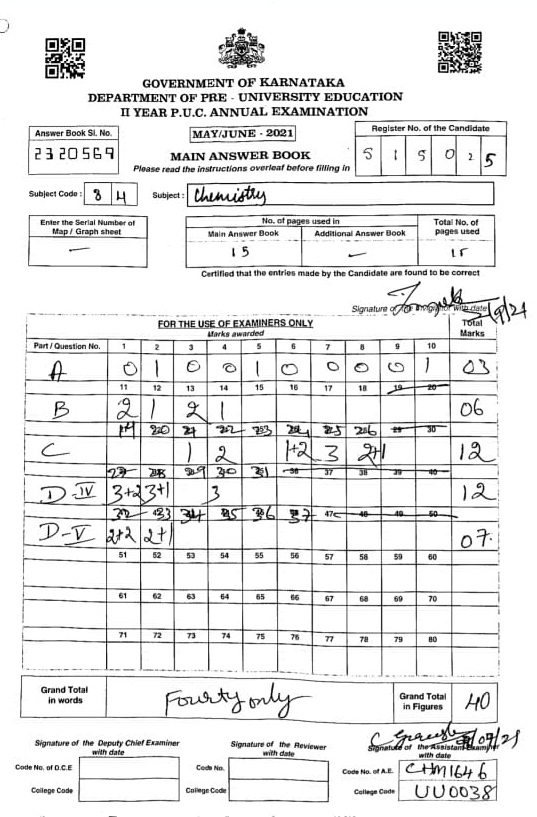 GOVERNMENT OF KARNATAKA
DEPARTMENT OF PRE - UNIVERSITY EDUCATION
II YEAR P.U.C. ANNUAL EXAMINATION
Answer Book Sl. No.
2320569
MAY/JUNE - 2021
MAIN ANSWER BOOK
Please read the instructions overleaf before filling in
Register No. of the Candidate
S 1 5 0 2 5
Subject Code : 3 4
Subject : Chemistry
Enter the Serial Number of Map / Graph sheet
—
No. of pages used in
Main Answer Book Additional Answer Book
15 —
Total No. of pages used
15
Certified that the entries made by the Candidate are found to be correct
Signature of the Invigilator with date
FOR THE USE OF EXAMINERS ONLY
Marks awarded
Total Marks
Part / Question No. 1 2 3 4 5 6 7 8 9 10
A 0 1 0 0 1 0 0 0 0 1 03
11 12 13 14 15 16 17 18 19 20
B 2 1 2 1 06
29 30
C 1 2 1+2 3 2+1 12
36 37 38 39 40
D-IV 3+2 3+1 3 12
47 48 49 50
D-V 2+2 2+1 07
51 52 53 54 55 56 57 58 59 60
61 62 63 64 65 66 67 68 69 70
71 72 73 74 75 76 77 78 79 80
Grand Total in words
Fourty only
Grand Total in Figures
40
Signature of the Deputy Chief Examiner with date
Signature of the Reviewer with date
Signature of the Assistant Examiner with date
Code No. of D.C.E
Code No.
Code No. of A.E. CHM1646
College Code
College Code
College Code UU0038